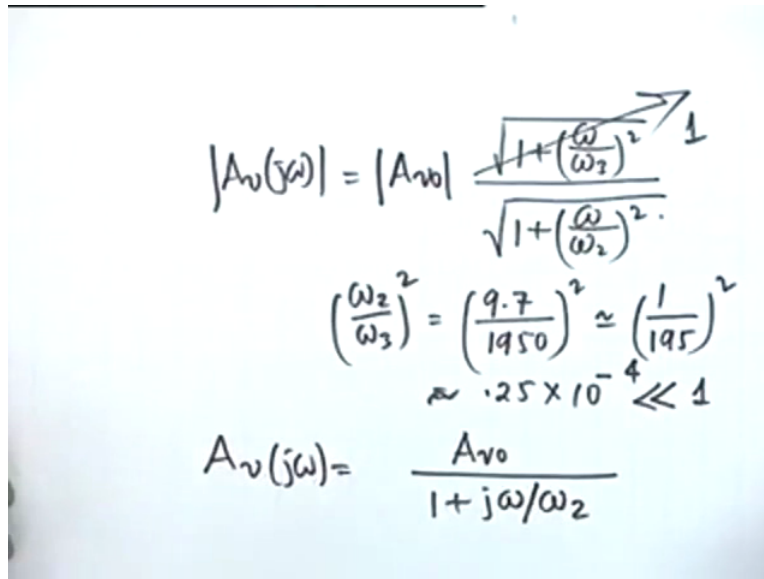 |Av(jω)| = |Avo| √1+(ω/ω3)² / √1+(ω/ω2)². 1
(ω2/ω3)² = (9.7/1950)² ≃ (1/195)²
≈ .25 × 10⁻⁴ << 1
Av(jω) = Avo / 1 + jω/ω2